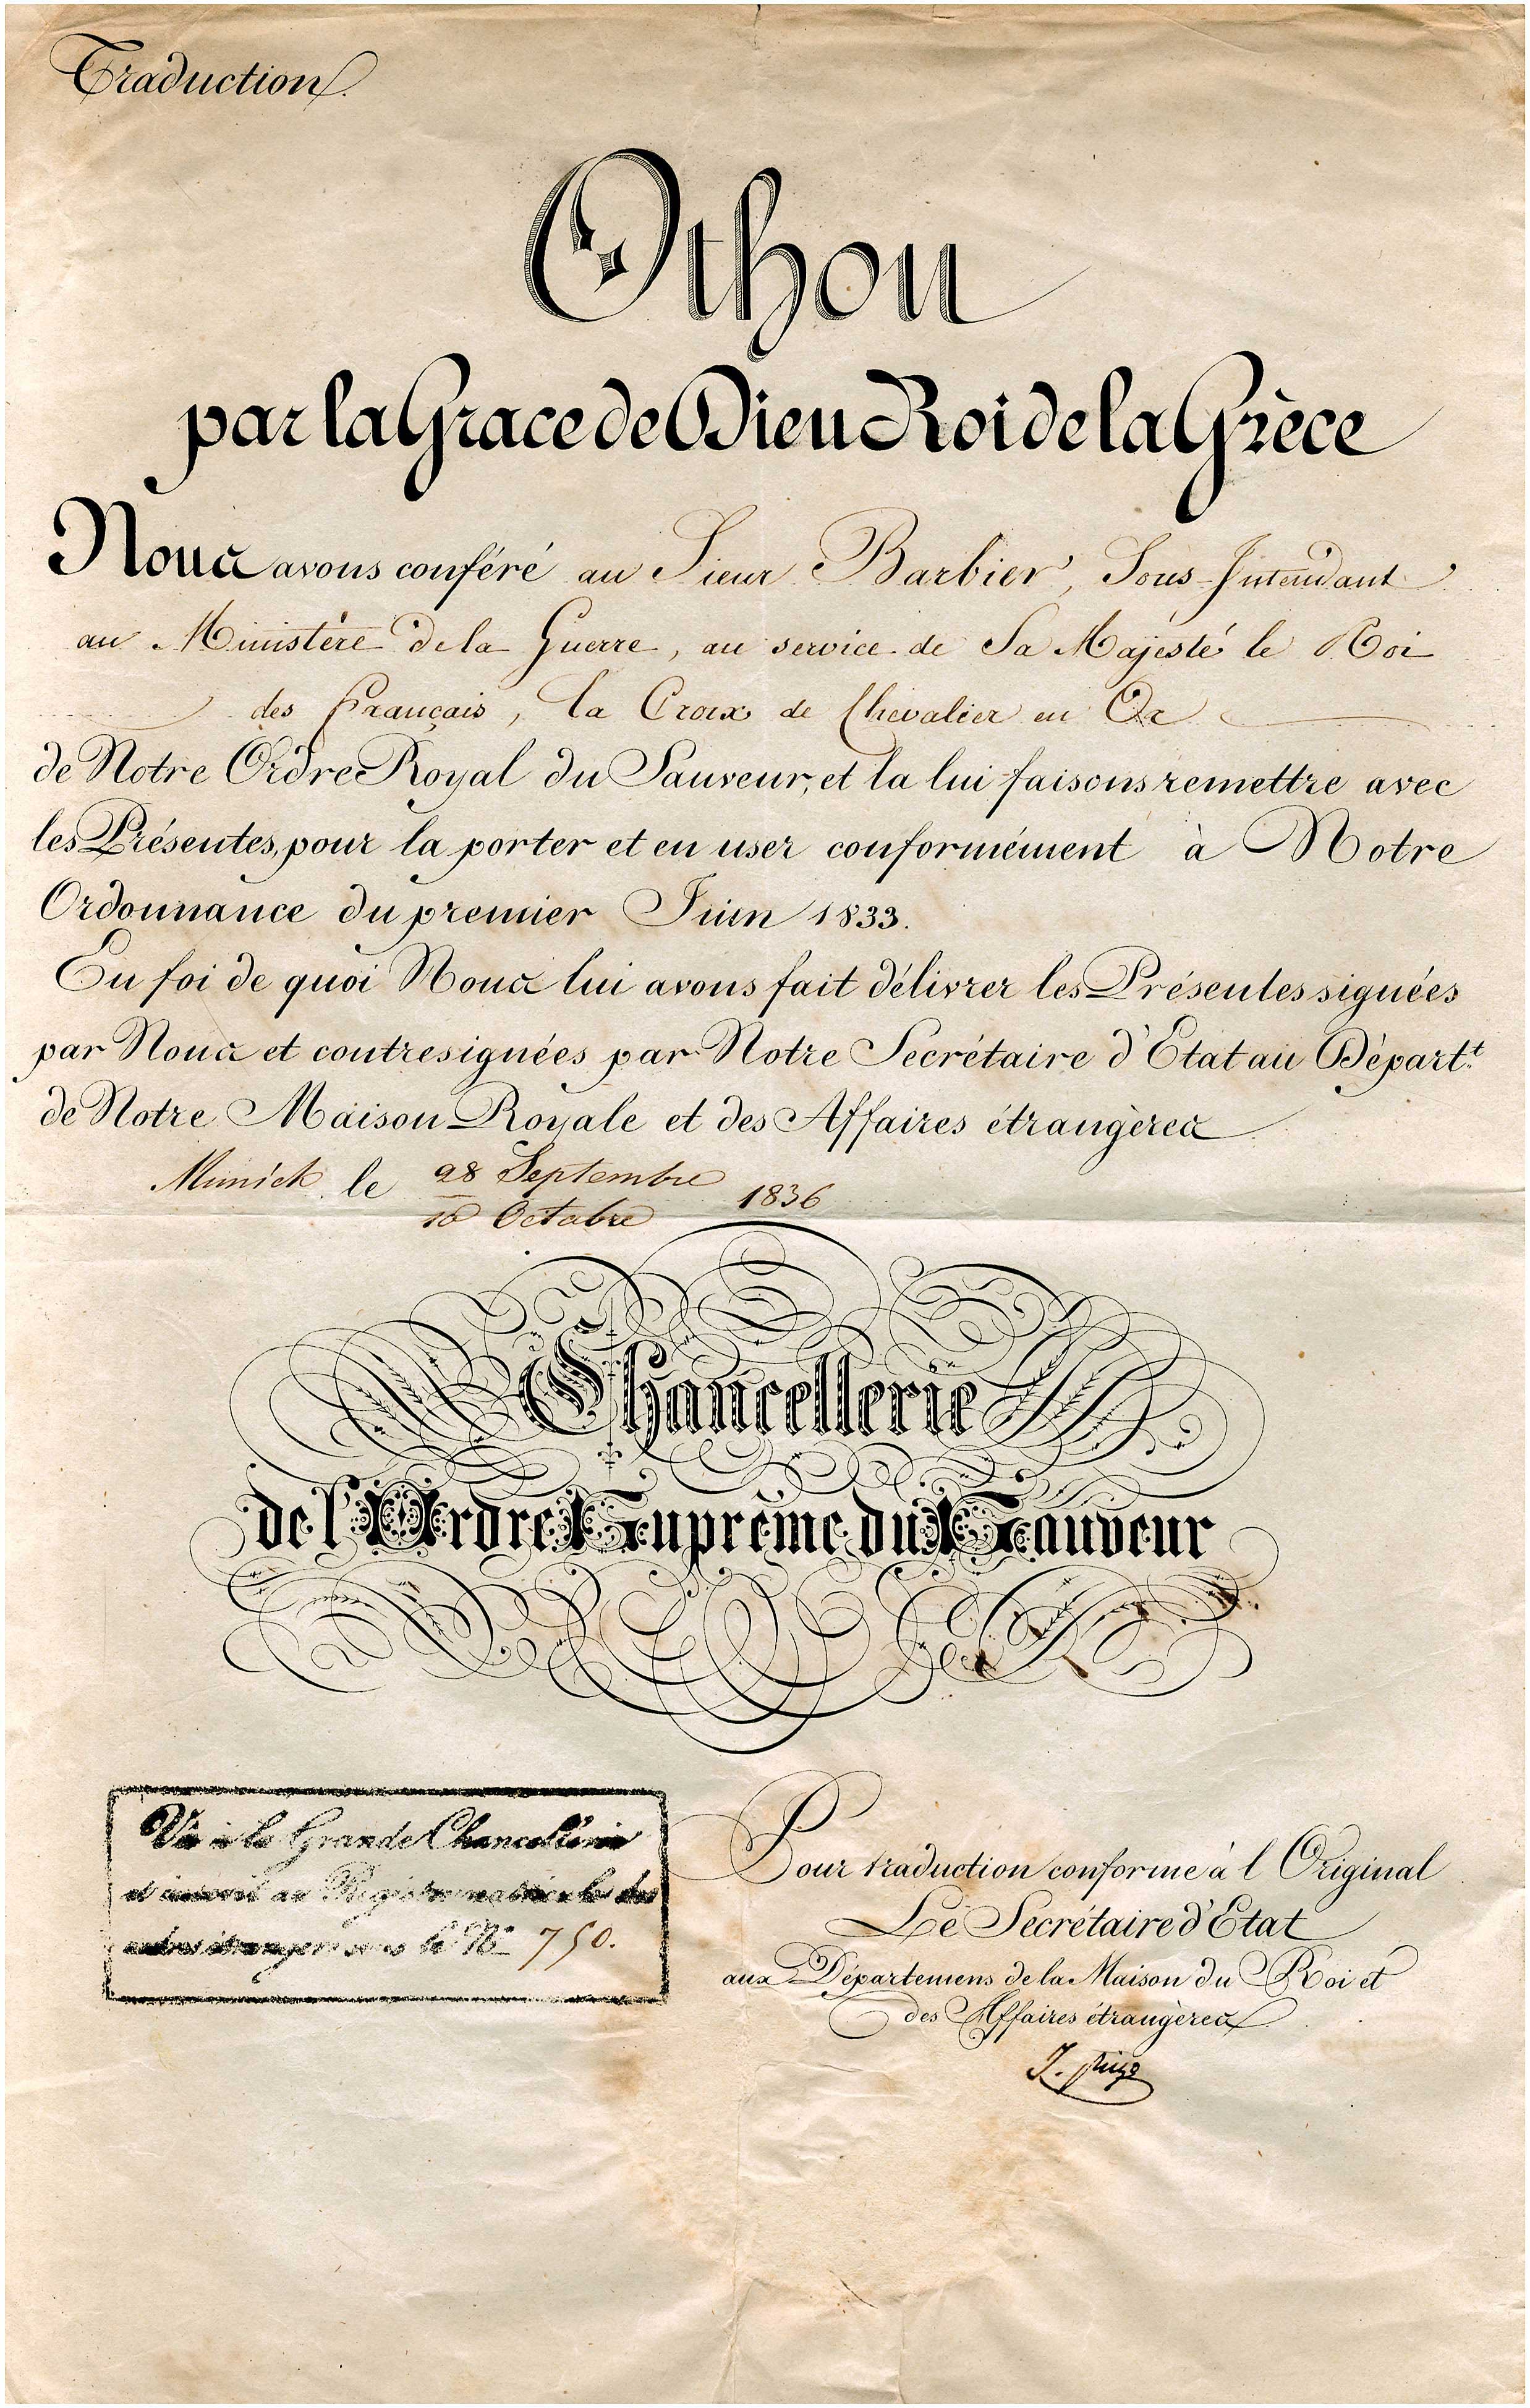 Traduction.
Othon
par la Grace de Dieu Roi de la Grèce
Nous avons conféré au Sieur Barbier, Sous-Intendant
au Ministère de la Guerre, au service de Sa Majesté le Roi
des Français, la Croix de Chevalier en Or
de Notre Ordre Royal du Sauveur, et la lui faisons remettre avec
les Présentes, pour la porter et en user conformément à Notre
Ordonnance du premier Juin 1833.
En foi de quoi Nous lui avons fait délivrer les Présentes signées
par Nous et contresignées par Notre Secrétaire d'Etat au Départ.t
de Notre Maison Royale et des Affaires étrangères
Munich le 28 Septembre 1836
10 Octobre
Chancellerie
de l'Ordre Suprême du Sauveur
Vu à la Grande Chancellerie
et inscrit au Registre matricule des
ordres étrangers sous le No 750.
Pour traduction conforme à l'Original
Le Secrétaire d'Etat
aux Départemens de la Maison du Roi et
des Affaires étrangères